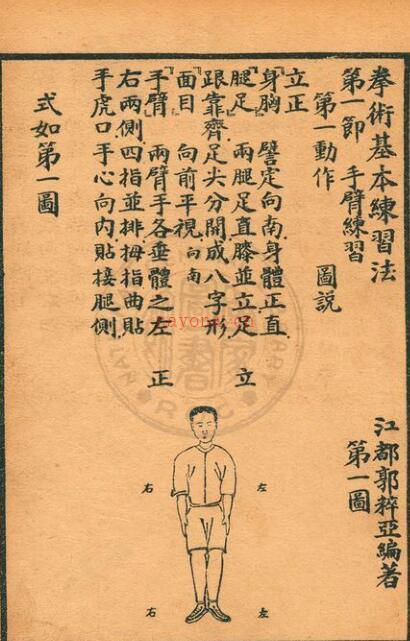 拳術基本練習法
江都郭粹亞編著
第一節 手臂練習
第一圖
第一動作 圖說
立正
『身胸』 譬定向南身體正直
『腿足』 兩腿足直膝並立足
跟靠齊足尖分開成八字形
『面目』 向前平視向南
『手臂』 兩臂手各垂體之左
右兩側四指並排拇指曲貼
手虎口手心向內貼接腿側
式如第一圖
立正
右
左
右
左
nayona.cn